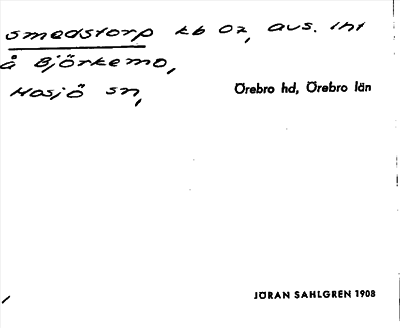 Smedstorp kb 02, avs. int
å Björkemo,
Mosjö sn,
Örebro hd, Örebro län
JÖRAN SAHLGREN 1908